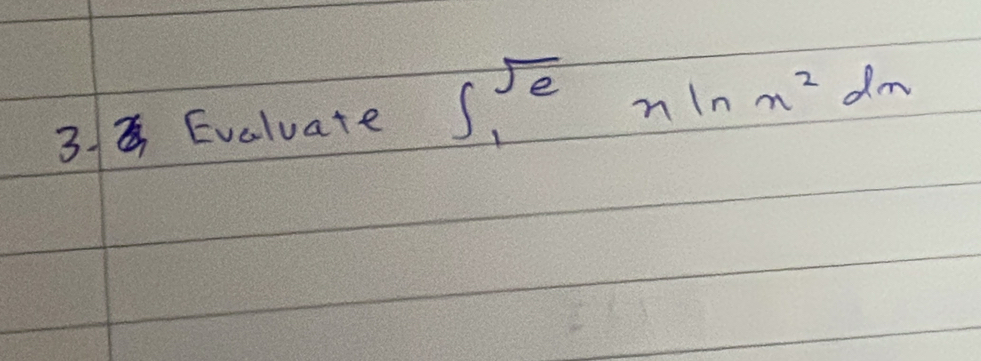 3. Evaluate ∫₁^√e x ln x² dx